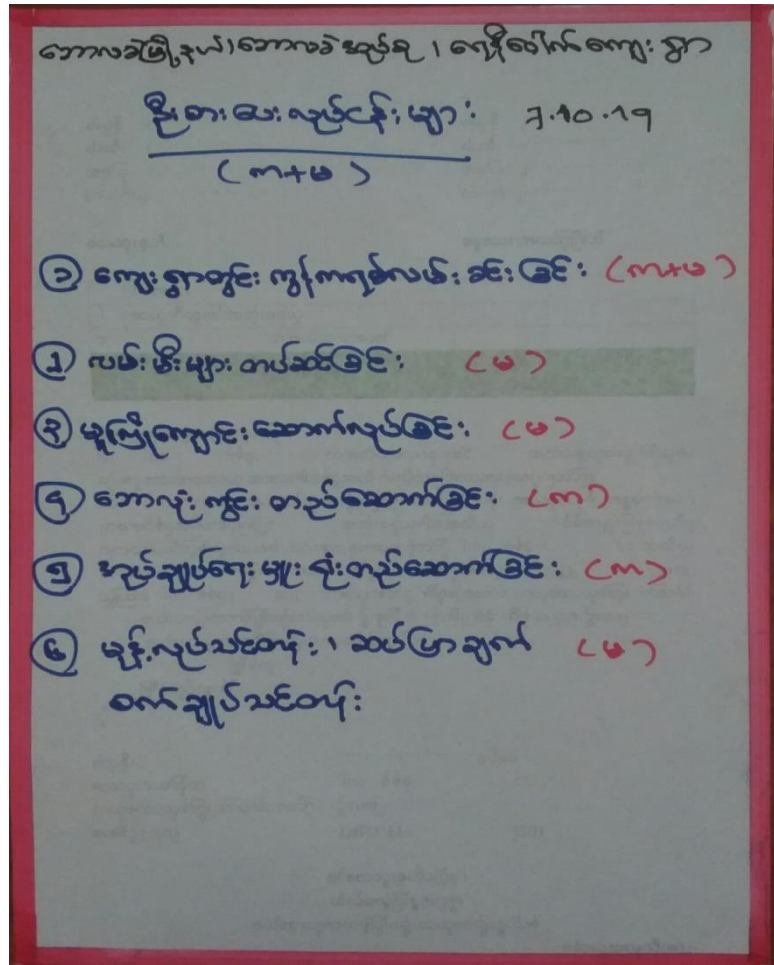 ဘောလခဲမြို့နယ်၊ ဘောလခဲအုပ်စု၊ ရေနီပေါက်ကျေးရွာ
ဦးစားပေးလုပ်ငန်းများ 7.10.19
(ကျ+မ)
၁ ကျေးရွာတွင်း ကွန်ကရစ်လမ်းခင်းခြင်း (ကျ+မ)
၂ လမ်းမီးများ တပ်ဆင်ခြင်း (မ)
၃ မူကြိုကျောင်းဆောက်လုပ်ခြင်း (မ)
၄ ဘောလုံးကွင်းတည်ဆောက်ခြင်း (ကျ)
၅ အုပ်ချုပ်ရေးမှူးရုံးတည်ဆောက်ခြင်း (ကျ)
၆ မုန့်လုပ်သင်တန်း၊ ဆပ်ပြာချက် (မ)
စက်ချုပ်သင်တန်း